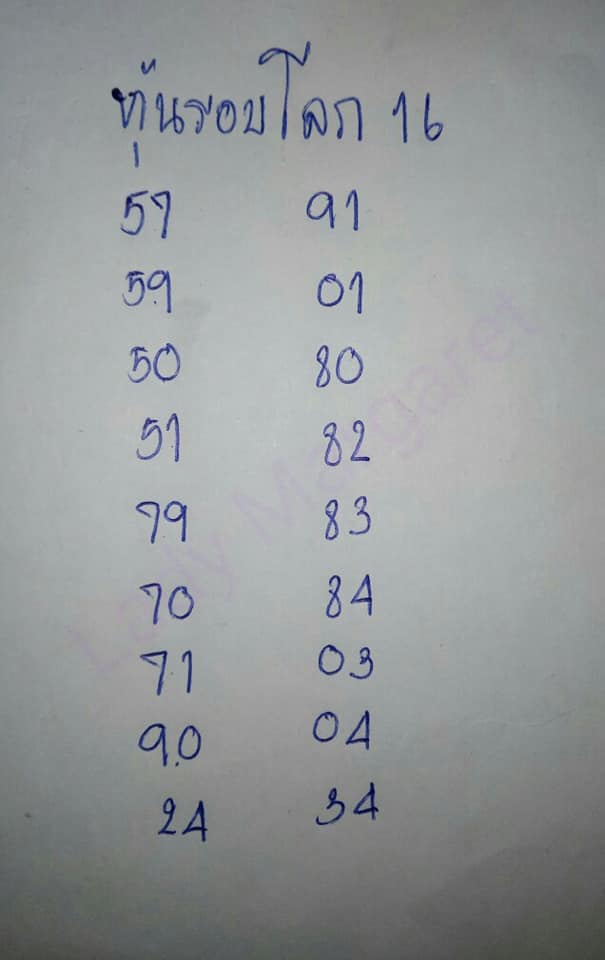 หุ้นรอบโลก 16
57 91
59 01
50 80
51 82
79 83
70 84
71 03
90 04
24 34
Lady Margaret